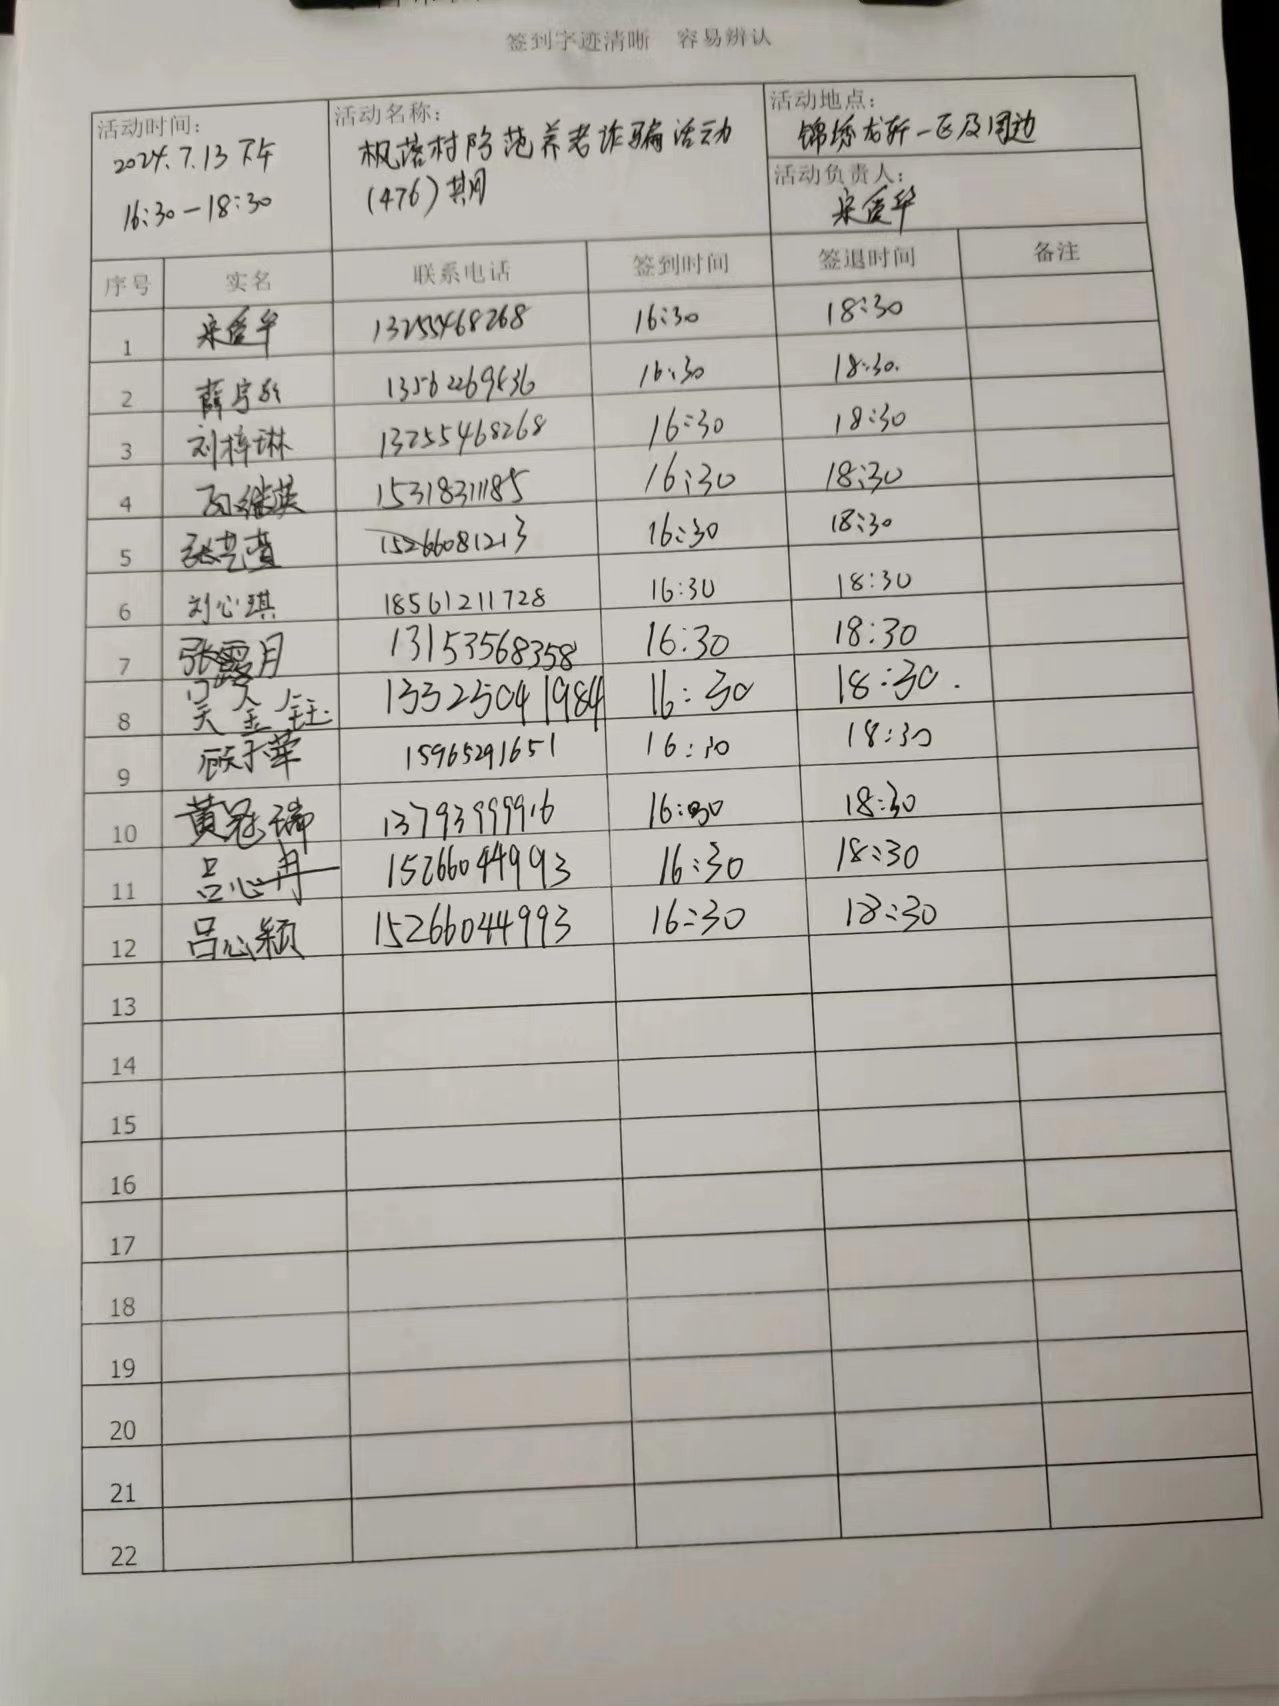 签到字迹清晰 容易辨认
活动时间: 活动名称: 活动地点:
2024.7.13 下午 枫落村防范养老诈骗活动 锦绣龙轩一区及周边
16:30-18:30 (476)其月 活动负责人:
宋爱华
序号 实名 联系电话 签到时间 签退时间 备注
1 宋爱华 13255468268 16:30 18:30
2 薛宇 16:30 18:30.
3 刘梓琳 13255468268 16:30 18:30
4 继英 15318311185 16:30 18:30
5 15266081213 16:30 18:30
6 刘心琪 18561211728 16:30 18:30
7 张露月 13153568358 16:30 18:30
8 吴金钰 13325041984 16:30 18:30.
9 顾于華 15965291651 16:30 18:30
10 黄冠瑞 13793999916 16:30 18:30
11 吕心冉 15266044993 16:30 18:30
12 吕心颖 15266044993 16:30 18:30
13
14
15
16
17
18
19
20
21
22